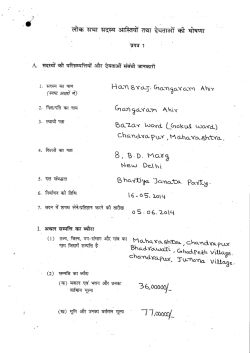 लोक सभा सदस्य आस्तियों तथा देयताओं की घोषणा
प्रपत्र 1
A. सदस्यों की परिसम्पत्तियों और देयताओं संबंधी जानकारी
1. सदस्य का नाम Hansraj Gangaram Ahir
(स्पष्ट अक्षरों में)
2. पिता/पति का नाम Gangaram Ahir
3. स्थायी पता Bazar Word (Gokul Word)
Chandrapur, Maharashtra.
4. दिल्ली का पता 8, B.D. Marg
New Delhi
5. दल संबद्धता Bhartiya Janata Party.
6. निर्वाचन की तिथि 16-05-2014
7. सदन में शपथ लेने/प्रतिज्ञान करने की तारीख 05-06-2014
I. अचल सम्पत्ति का ब्यौरा
(1) राज्य, जिला, उप-संभाग और गांव का नाम जिसमें सम्पत्ति है
Maharashtra, chandrapur
Bhadrawati, Ghodpeth Village.
chandrapur, Junona Village.
(2) सम्पत्ति का ब्यौरा
(क) मकान एवं भवन और उनका वर्तमान मूल्य 36,00000/-
(ख) भूमि और उनका वर्तमान मूल्य 77,0000/-